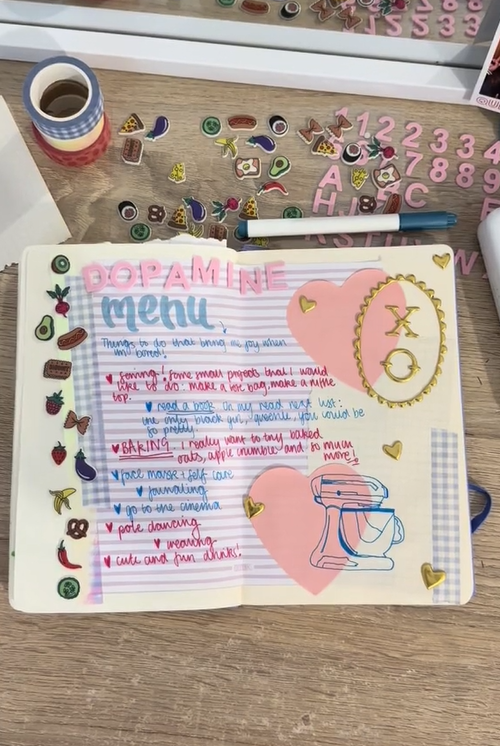 DOPAMINE
menu
Things to do that bring me joy when
im bored!
sewing! some small projects that I would
like to do: make a
top.
read a book on my read next list:
the only black girl, queenie, you could be
so pretty!
BAKING I really want to try baked
oats, apple crumble and so much
more!
face mask + self care
journaling
go to the cinema
pole dancing
weaving
cute and fun drinks!
X
O